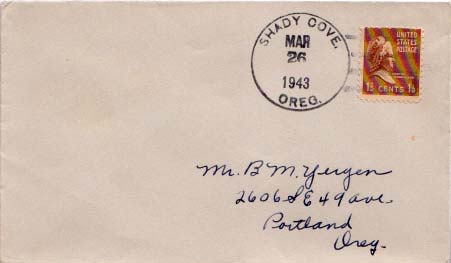 SHADY COVE.
MAR
26
1943
OREG.
UNITED
STATES
POSTAGE
1½ CENTS 1½
Mr. B M. Yergen
2606 S E 49 ave.
Portland
Oreg.